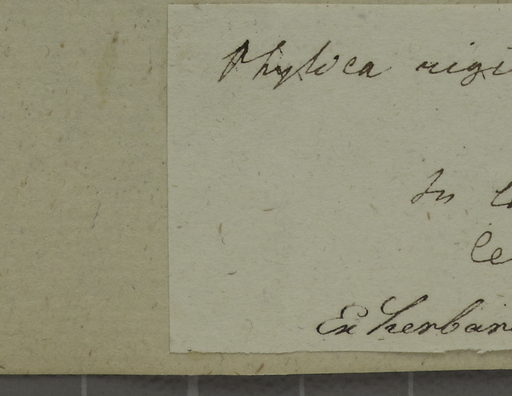 Phylica rigi
In C
Ce
Ex herbar